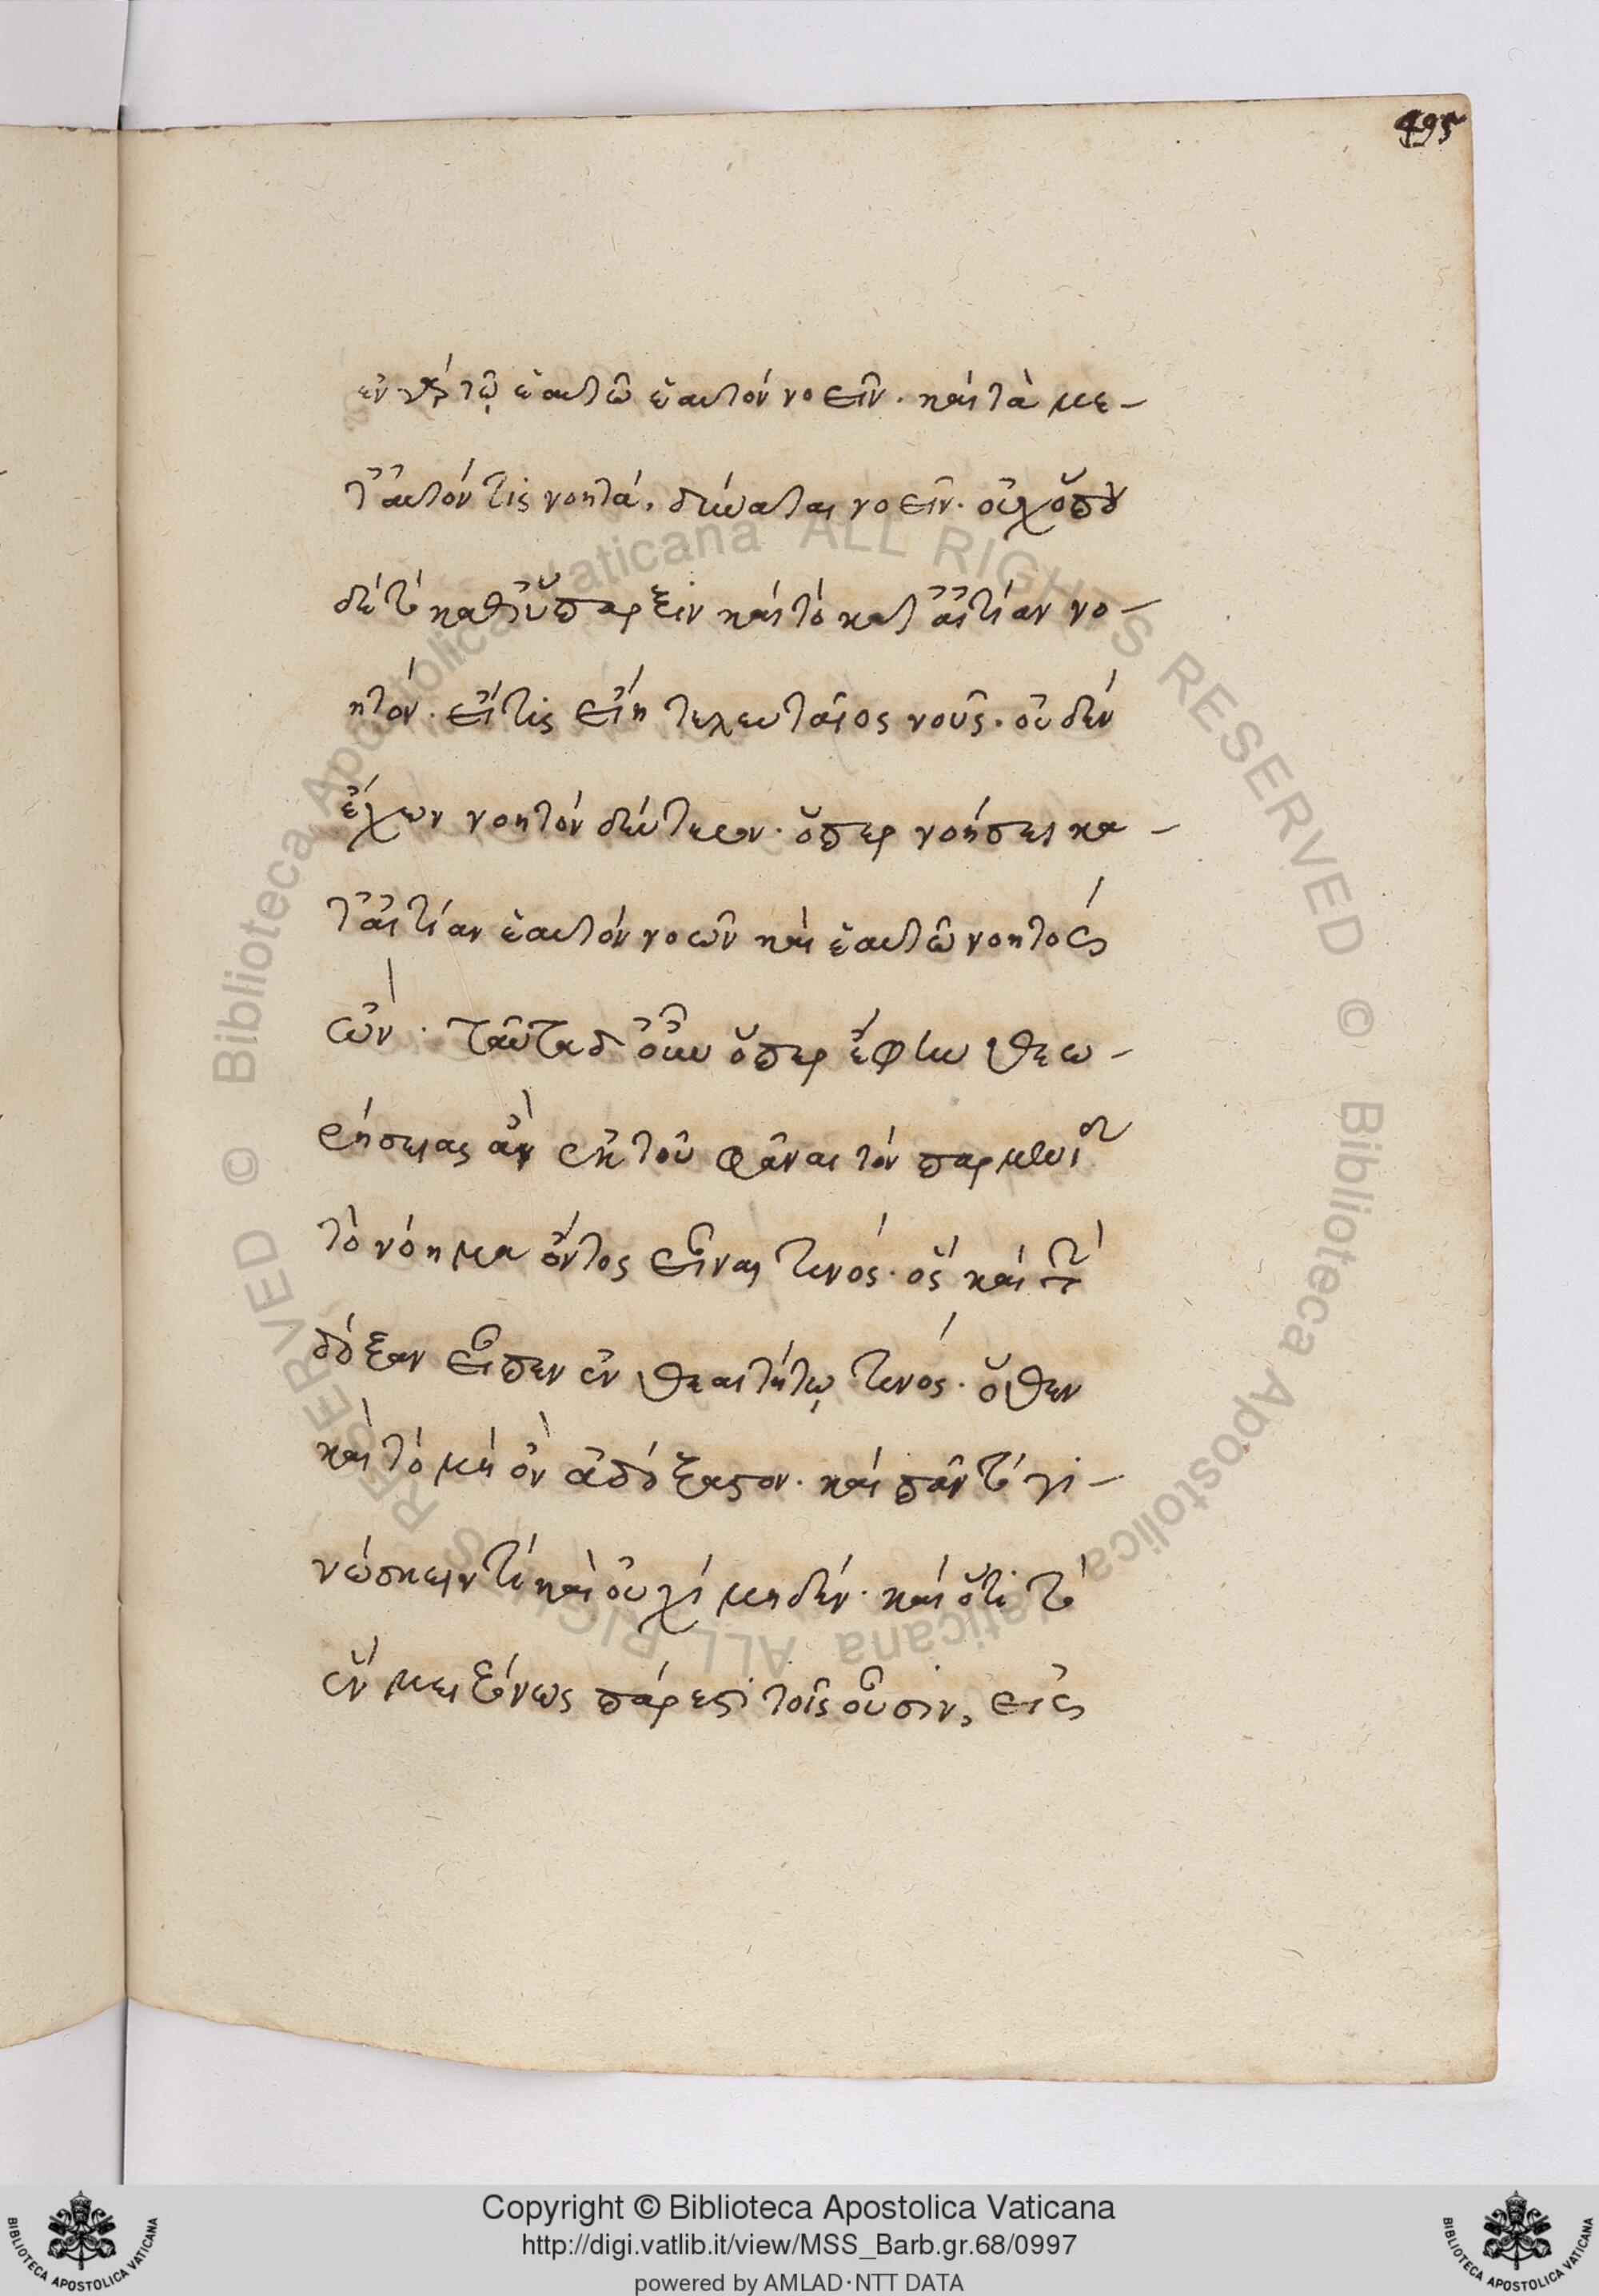 495
ἐν γὰρ τῷ ἑαυτῶ ἑαυτὸν νοεῖν. καὶ τὰ με-
τ' αὐτόν τις νοητὰ, δύναται νοεῖν. οὐχ ὅπου
δὲ τὸ καθ' ὕπαρξιν καὶ τὸ κατ' αἰτίαν νο-
ητόν. εἴ τις εἴη τελευταῖος νοῦς. οὐδὲν
ἔχων νοητὸν δεύτερον. ὅπερ νοήσει κα-
τ' αἰτίαν ἑαυτὸν νοῶν καὶ ἑαυτῶ νοητὸς
ὤν. ταῦτα δ' οὖν ὅπερ ἔφην θεω-
ρήσειας ἂν ἐκ τοῦ φᾶναι τὸν παρμενίδ
τὸ νόημα ὄντος εἶναι τινός. ὃς καὶ τὴν
δόξαν εἶπεν ἐν θεαιτήτῳ τινός. ὅθεν
καὶ τὸ μὴ ὂν ἀδόξαστον. καὶ πᾶν τὸ γι-
νώσκειν τὶ καὶ οὐχὶ μηδέν. καὶ ὅτι τὸ
ἓν μειζόνως πάρεστι τοῖς οὖσιν, εἰς
Copyright © Biblioteca Apostolica Vaticana
http://digi.vatlib.it/view/MSS_Barb.gr.68/0997
powered by AMLAD·NTT DATA
BIBLIOTECA APOSTOLICA VATICANA
BIBLIOTECA APOSTOLICA VATICANA
© Biblioteca Apostolica Vaticana ALL RIGHTS RESERVED © Biblioteca Apostolica Vaticana ALL RIGHTS RESERVED